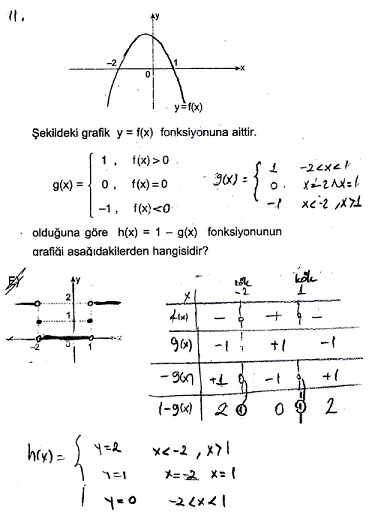 11.
y
-2
0
1
x
y=f(x)
Şekildeki grafik y = f(x) fonksiyonuna aittir.
g(x) = { 1 , f(x)>0
0 , f(x)=0
-1 , f(x)<0
g(x) = { 1 -2<x<1
0. x=-2 ∧ x=1
-1 x<-2 , x>1
olduğuna göre h(x) = 1 - g(x) fonksiyonunun
grafiği aşağıdakilerden hangisidir?
E)
y
2
1
-2 0 1 x
kök kök
x -2 1
f(x) - + -
g(x) -1 +1 -1
-g(x) +1 -1 +1
1-g(x) 2 1 0 1 2
h(x) = { y=2 x<-2 , x>1
y=1 x=-2 x=1
y=0 -2<x<1